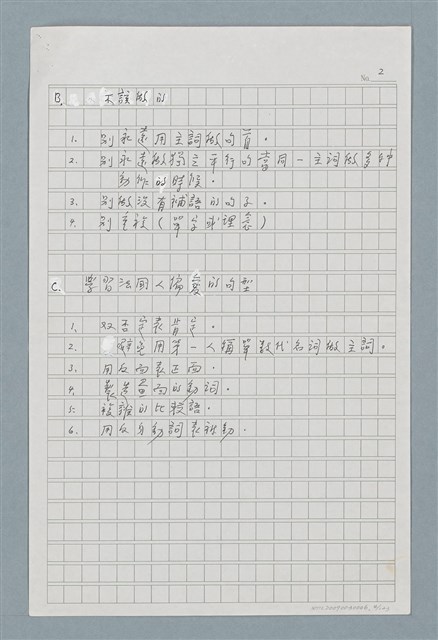 No. 2
B. 不該做的
1. 別永遠用主詞做句首。
2. 別永遠做獨立平行的當同一主詞做多種
動作的時候。
3. 別做沒有補語的句子。
4. 別重複（單字或理念）
C. 學習法國人偏愛的句型
1. 双否定表肯定。
2. 避免用第一人稱單數代名詞做主詞。
3. 用反面表正面。
4. 戲劇的動詞。
5. 複雜的比較語。
6. 用反身動詞表被動.